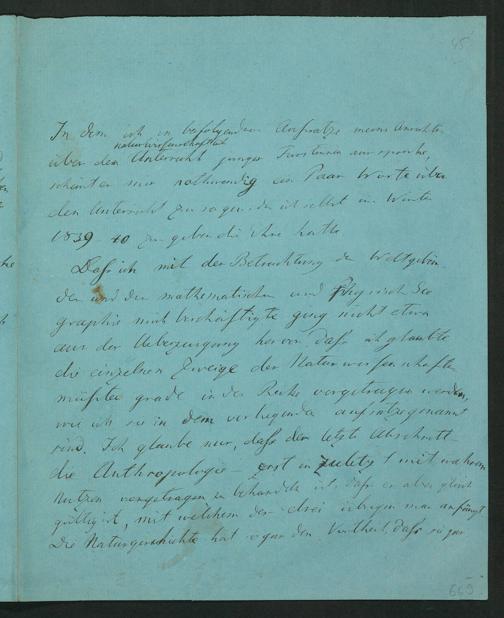 45
In dem ich in beifolgendem Aufsatze meine Ansichten
naturwissenschaftl
über den Unterricht junger Fürstinnen ausspreche,
scheint es mir nothwendig ein Paar Worte über
den Unterricht zu sagen, den ich selbst im Winter
1839-40 zu geben die Ehre hatte
Daß ich mit der Betrachtung des Weltgebäu
des und der mathematischen und Physisch Geo
graphie mich beschäftigte ging nicht etwa
aus der Ueberzeugung hervor, daß ich glaubte
die einzelnen Zweige der Naturwissenschaften
müßten grade in der Reihe vorgetragen werden,
wie ich sie in dem vorliegenden aufsatze genannt
sind. Ich glaube nur, daß der letzte Abschnitt
die Anthropologie - erst zuletzt mit wahrem
Nutzen vorgetragen behandelt ist, daß es aber gleich
gültig ist, mit welchem der drei übrigen man anfängt
Die Naturgeschichte hat sogar den Vortheil, daß sie
669